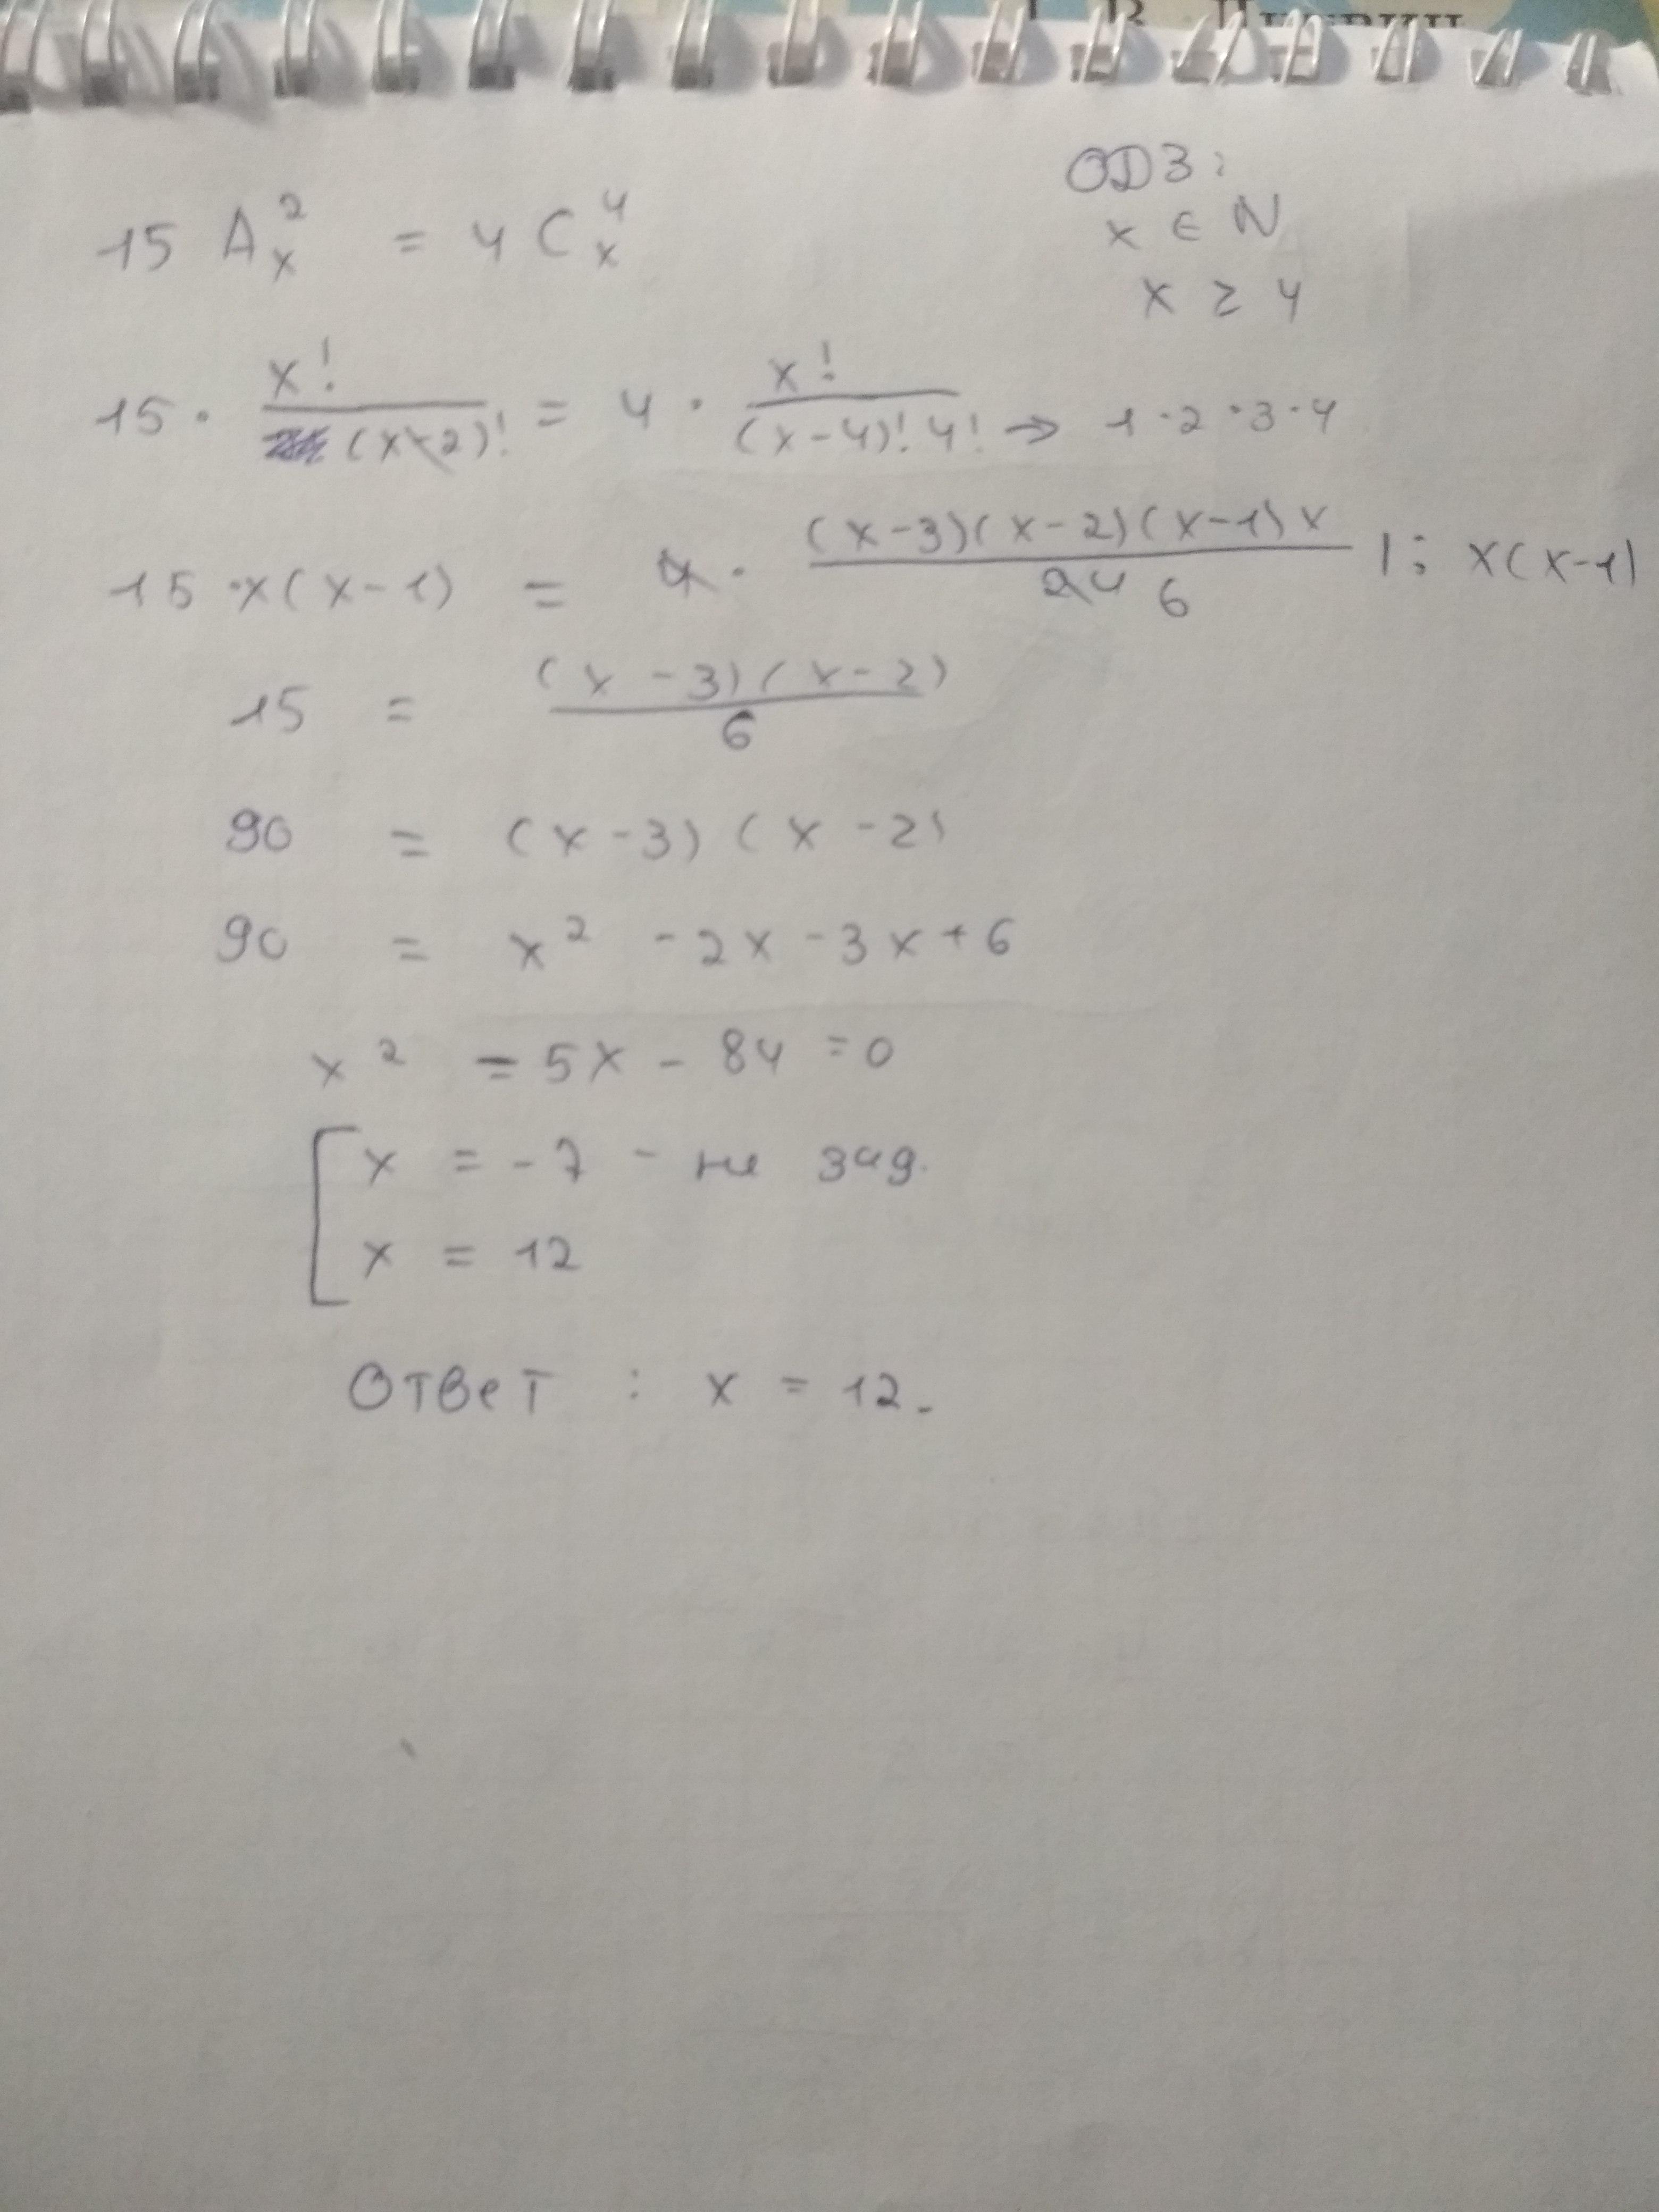 ОДЗ:
x ∈ N
x ≥ 4
15 A_x^2 = 4 C_x^4
15 · x! / (x-2)! = 4 · x! / (x-4)! 4! → 1·2·3·4
15 · x(x-1) = 4 · (x-3)(x-2)(x-1)x / 24 6 | : x(x-1)
15 = (x-3)(x-2) / 6
90 = (x-3)(x-2)
90 = x² -2x -3x+6
x² = 5x - 84 =0
x = -7 - не зад.
x = 12
Ответ : x = 12.